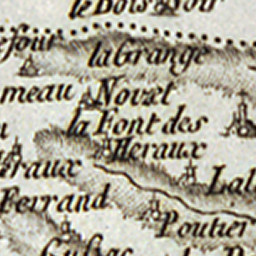 le Bois Noir
la Grange
meau
Novzet
la Font des
Heraux
eraux
Lal
Ferrand
Poutier